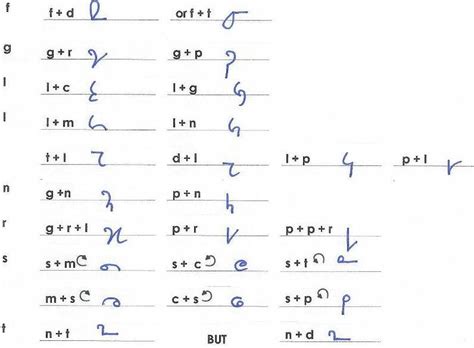 f f + d or f + t
g g + r g + p
l l + c l + g
l l + m l + n
t + l d + l l + p p + l
n g + n p + n
r g + r + l p + r p + p + r
s s + m s + c s + t
m + s c + s s + p
t n + t BUT n + d